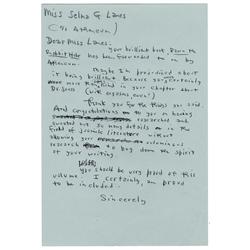 Miss Selma G Lanes
(c/o Atheneum)
Dear Miss Lanes.
Your brilliant book Down the
Rabbit Hole has been forwarded to me by
Atheneum.
Maybe I'm prejudiced about
it being brilliant because you certainly
in your chapter about
Dr. Seuss (
Thank you for the things you said.
And congratulations to you on having
researched and
sweated out so many details in the
field of juvenile literature without
allowing your voluminous
research to bog down the spirit
of your writing.
You should be very proud of this
volume. I certainly am proud
to be included.
Sincerely